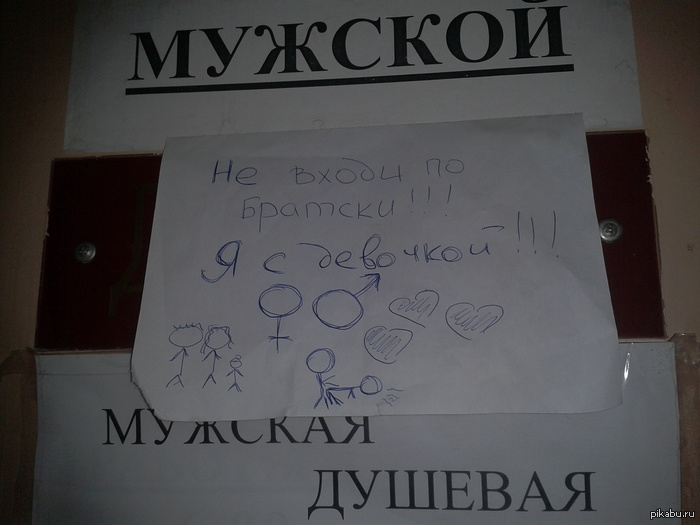 МУЖСКОЙ
Не входи по
Братски!!!
Я с девочкой!!!
МУЖСКАЯ
ДУШЕВАЯ
pikabu.ru